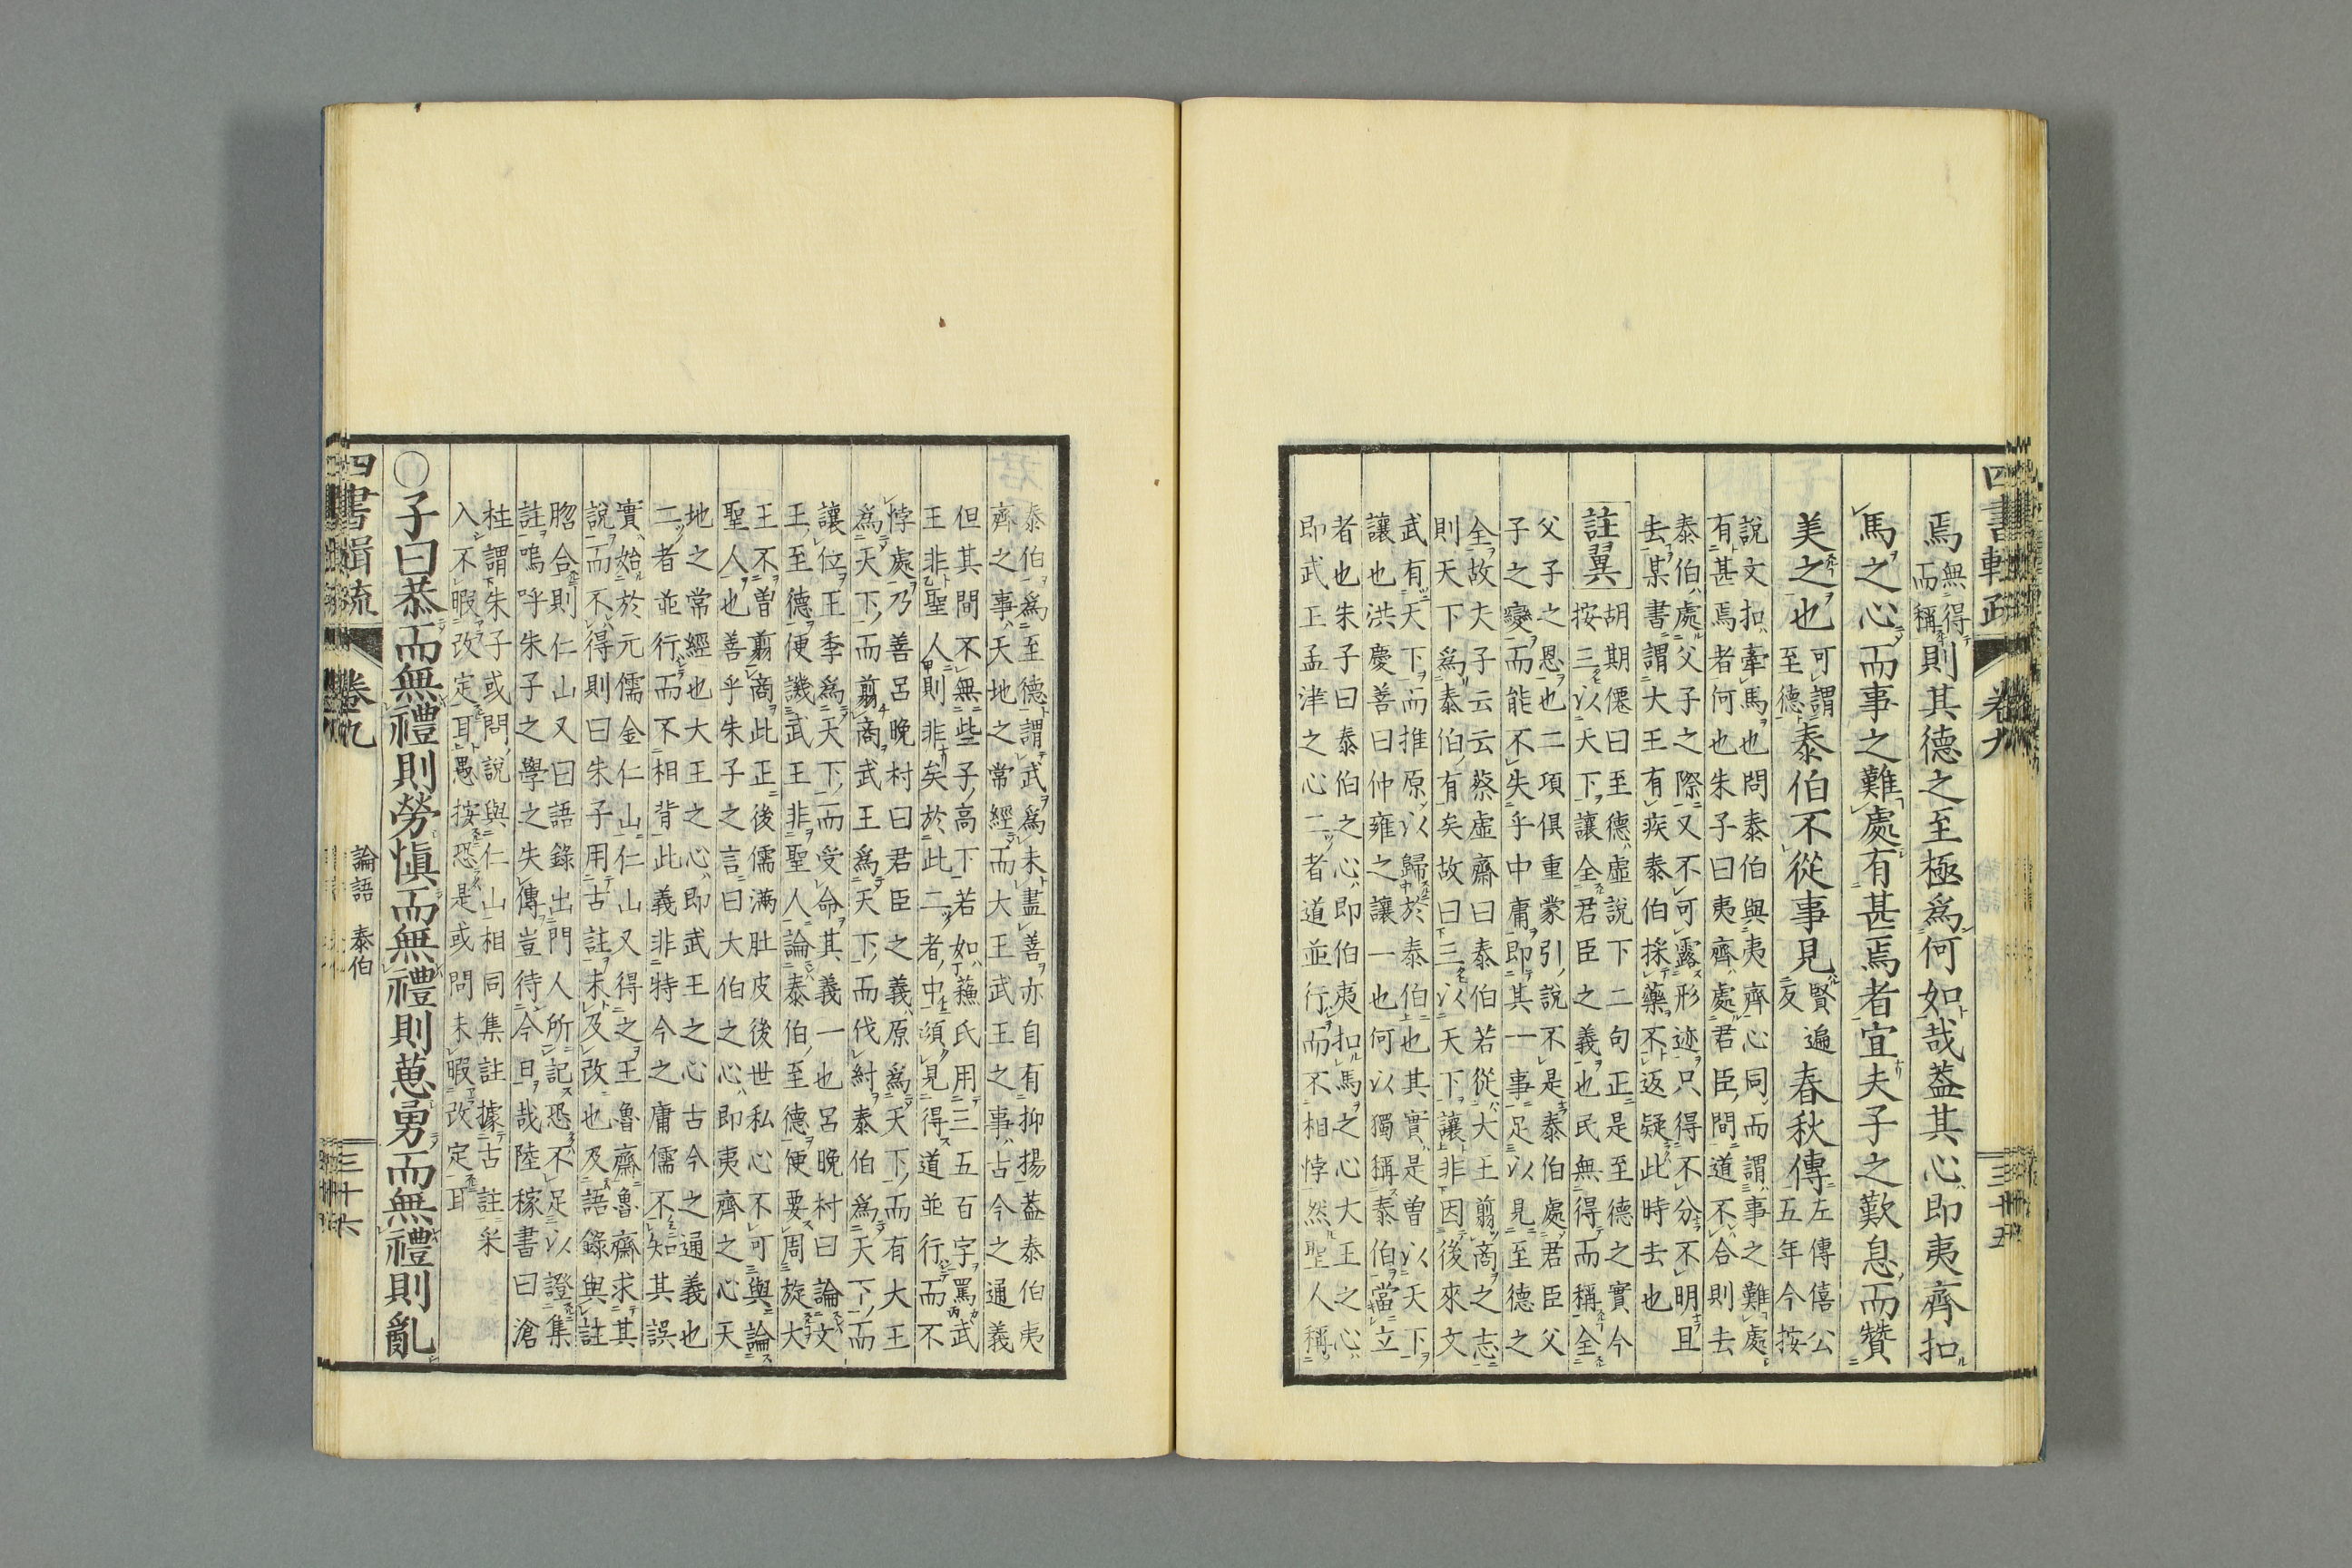 四書輯疏 卷九 三十五
焉無得
而稱則其德之至極爲何如哉蓋其心即夷齊扣
馬之心而事之難處有甚焉者宜夫子之歎息而贊
美之也可謂
至德泰伯不從事見賢遍
反春秋傳左傳僖公
五年今按
說文扣牽馬也問泰伯與夷齊心同而謂事之難處
有甚焉者何也朱子曰夷齊處君臣間道不合則去
泰伯處父子之際又不可露形迹只得不分不明且
去某書謂大王有疾泰伯採藥不返疑此時去也
註翼
胡期僊曰至德虛說下二句正是至德之實今
按三以天下讓全君臣之義也民無得而稱全
父子之恩也二項俱重蒙引說不是泰伯處君臣父
子之變而能不失乎中庸即其一事足以見至德之
全故夫子云云蔡虛齋曰泰伯若從大王翦商之志
則天下爲泰伯有矣故曰三以天下讓非因後來文
武有天下而推原以歸於泰伯也其實是曾以天下
讓也洪慶善曰仲雍之讓一也何以獨稱泰伯當立
者也朱子曰泰伯之心即伯夷扣馬之心大王之心
即武王孟津之心二者道並行而不相悖然聖人稱
泰伯爲至德謂武爲未盡善亦自有抑揚蓋泰伯夷
齊之事天地之常經而大王武王之事古今之通義
但其間不無些子高下若如蘓氏用三五百字罵武
王非聖人則非矣於此二者中須見得道並行而不
悖處乃善呂晚村曰君臣之義原爲天下而有大王
爲天下而翦商武王爲天下而伐紂泰伯爲天下而
讓位王季爲天下而受命其義一也呂晚村曰論文
王至德便譏武王非聖人論泰伯至德便要周旋大
王不曾翦商此正後儒滿肚皮後世私心不可與論
聖人也善乎朱子之言曰大伯之心即夷齊之心天
地之常經也大王之心即武王之心古今之通義也
二者並行而不相背此義非特今之庸儒不知其誤
實始於元儒金仁山仁山又得之王魯齋魯齋求其
說而不得則曰朱子用古註未及改也及語錄與註
脗合則仁山又曰語錄出門人所記恐不足以證集
註嗚呼朱子之學之失傳豈待今日哉陸稼書曰滄
柱謂朱子或問說與仁山相同集註據古註采
入不暇改定耳愚按恐是或問未暇改定耳
○子曰恭而無禮則勞愼而無禮則葸勇而無禮則亂
四書輯疏 卷九 論語 泰伯 三十六